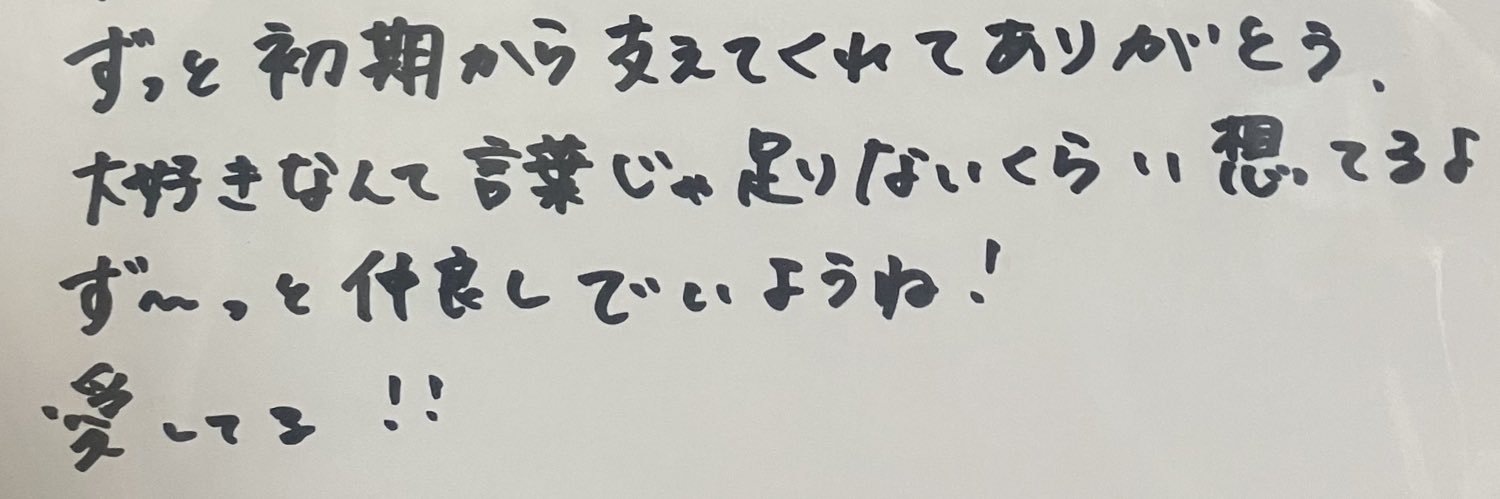 ずっと初期から支えてくれてありがとう、
大好きなんて言葉じゃ足りないくらい想ってるよ
ず〜っと仲良しでいようね!
愛してる!!